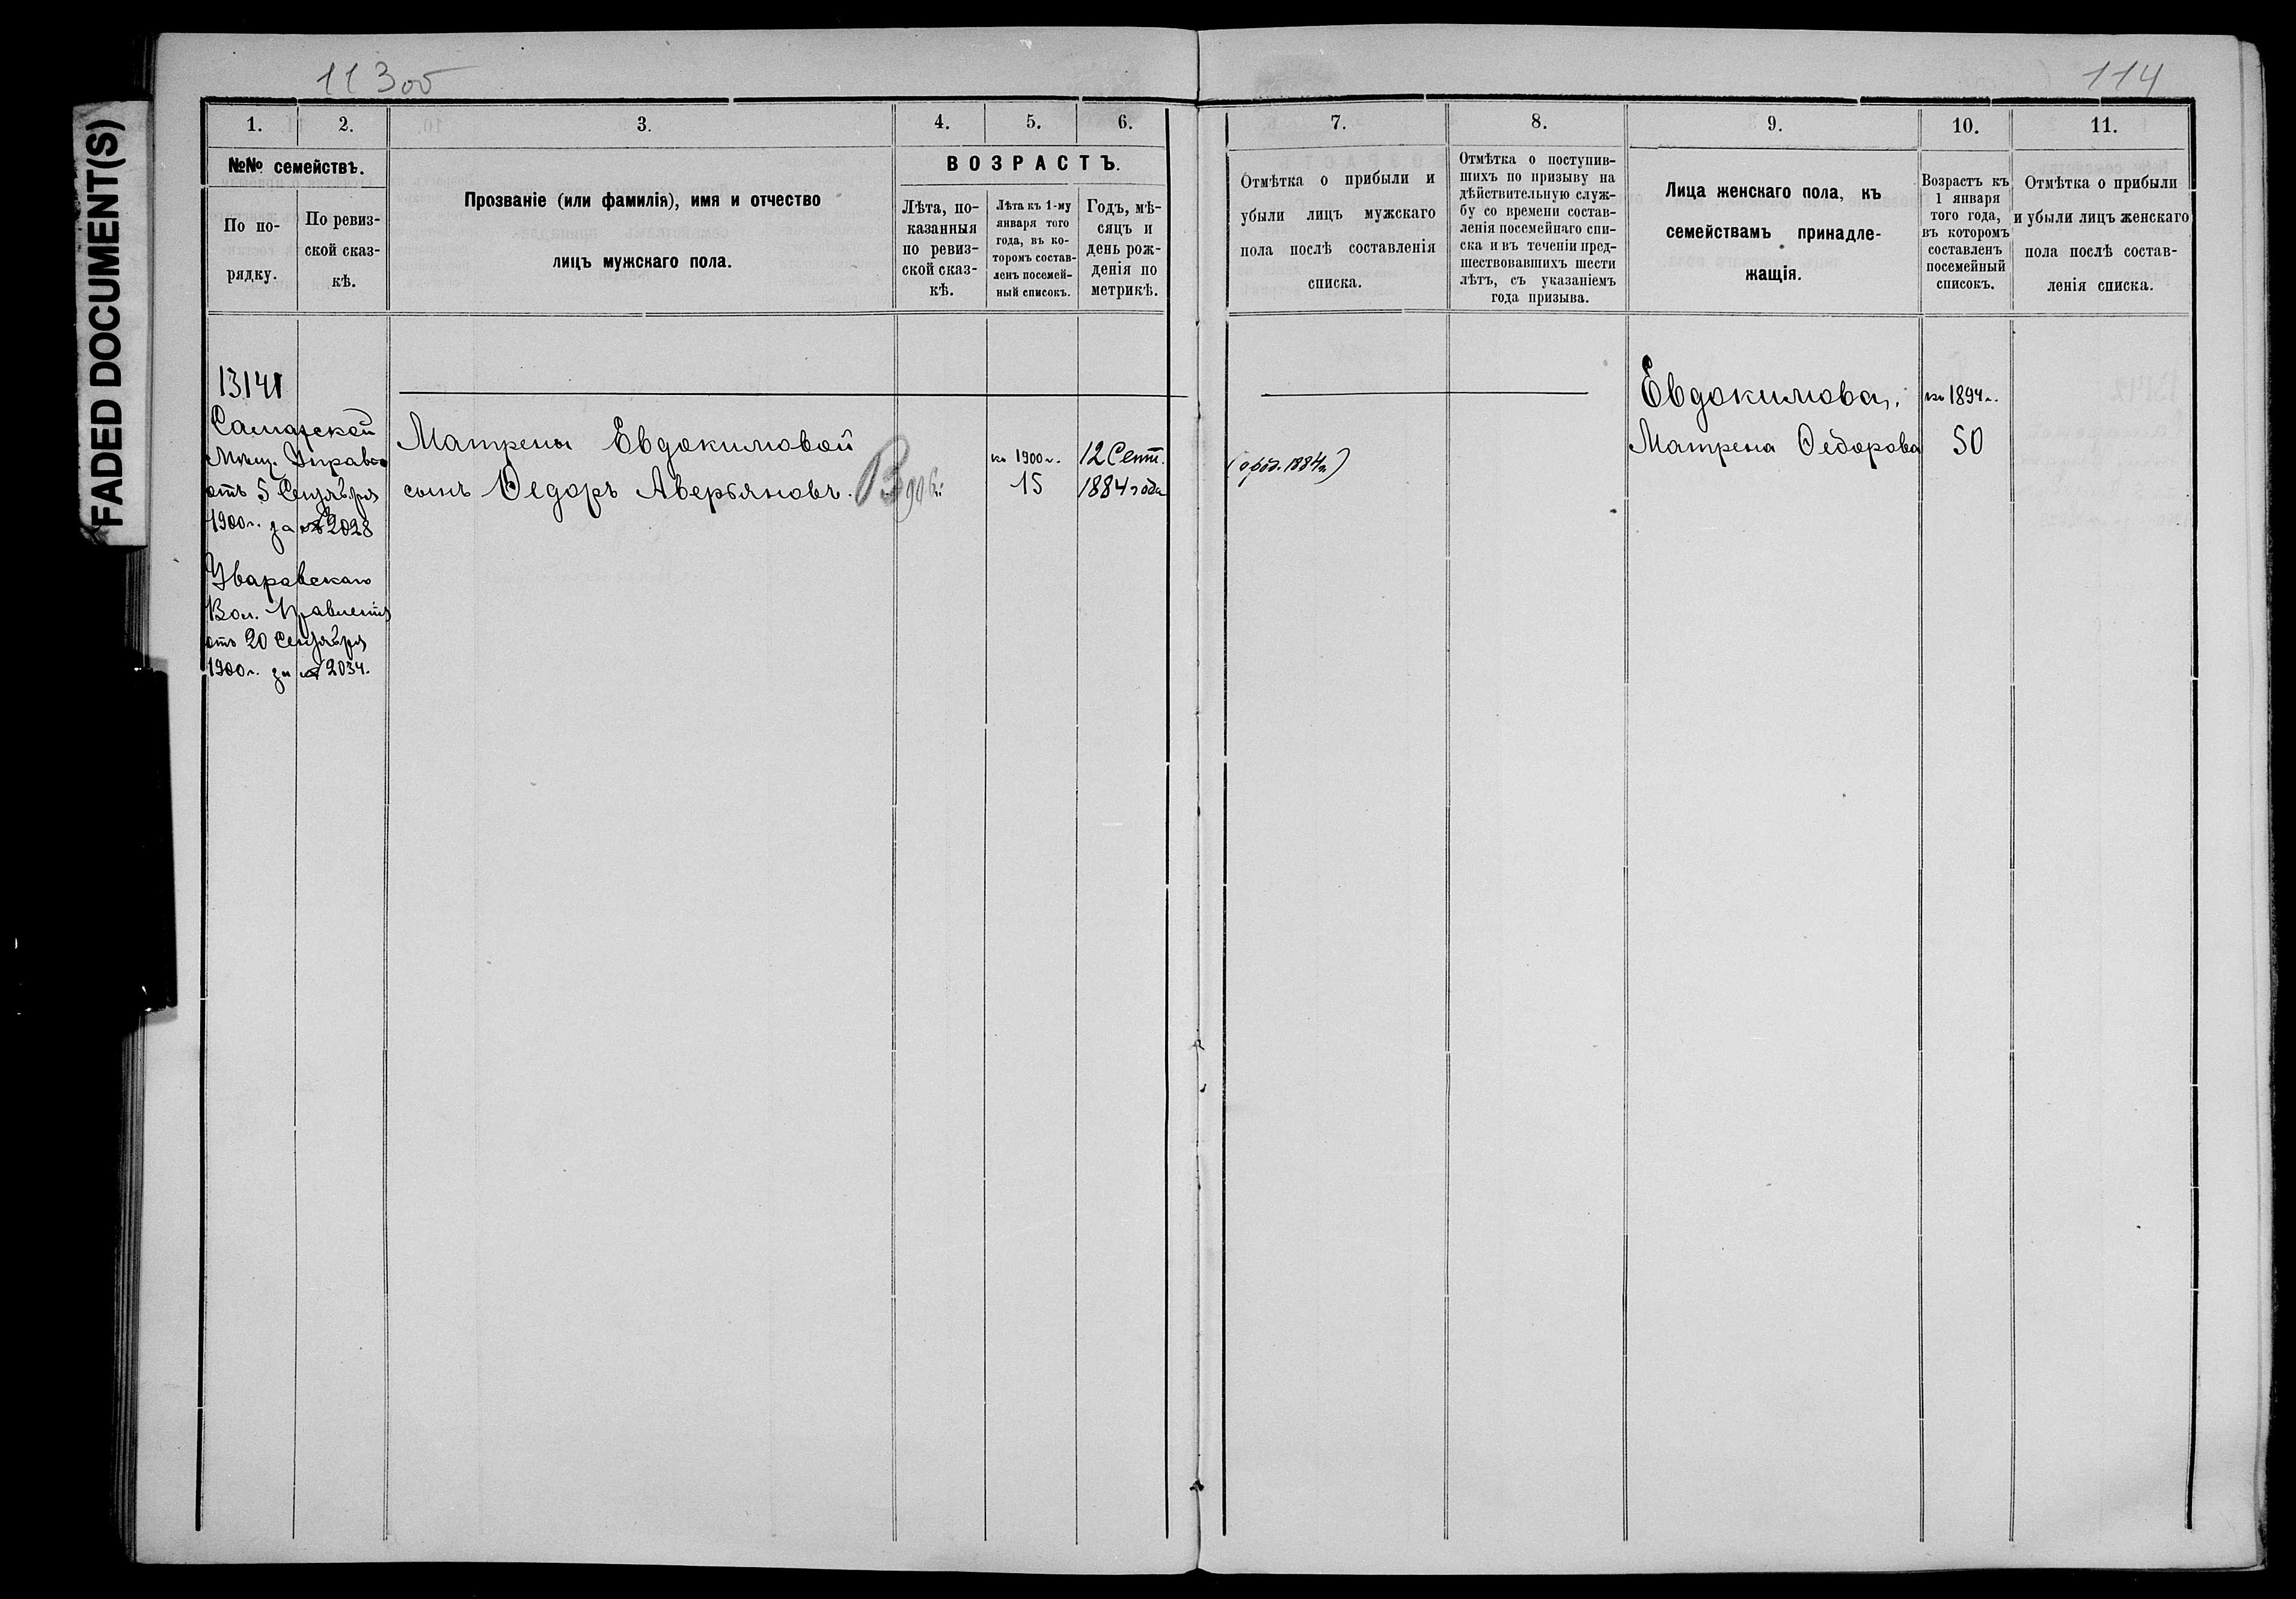 FADED DOCUMENT(S)
113об
114
1.
2.
3.
4.
5.
6.
7.
8.
9.
10.
11.
№№ семействъ.
По по-
рядку.
По ревиз-
ской сказ-
кѣ.
Прозваніе (или фамилія), имя и отчество
лицъ мужскаго пола.
ВОЗРАСТЪ.
Лѣта, по-
казанныя
по ревиз-
ской сказ-
кѣ.
Лѣта къ 1-му
января того
года, въ ко-
торомъ состав-
ленъ посемей-
ный списокъ.
Годъ, мѣ-
сяцъ и
день рож-
денія по
метрикѣ.
Отмѣтка о прибыли и
убыли лицъ мужскаго
пола послѣ составленія
списка.
Отмѣтка о поступив-
шихъ по призыву на
дѣйствительную служ-
бу со времени состав-
ленія посемейнаго спи-
ска и въ теченіи пред-
шествовавшихъ шести
лѣтъ, съ указаніемъ
года призыва.
Лица женскаго пола, къ
семействамъ принадле-
жащія.
Возрастъ къ
1 января
того года,
въ которомъ
составленъ
посемейный
списокъ.
Отмѣтка о прибыли
и убыли лицъ женскаго
пола послѣ состав-
ленія списка.
13141
Самарской
Мѣщ. Управы
отъ 5 Сентября
1900г. за № 2028
Уваравскаго
Вол. Правленія
отъ 20 Сентября
1900г. за № 2034.
Матрены Евдокимовой
сынъ Ѳедоръ Аверьяновъ.
къ 1900г.
15
12 Сент.
1884 года
1884г)
Евдокимова,
Матрена Ѳедорова
къ 1894г.
50